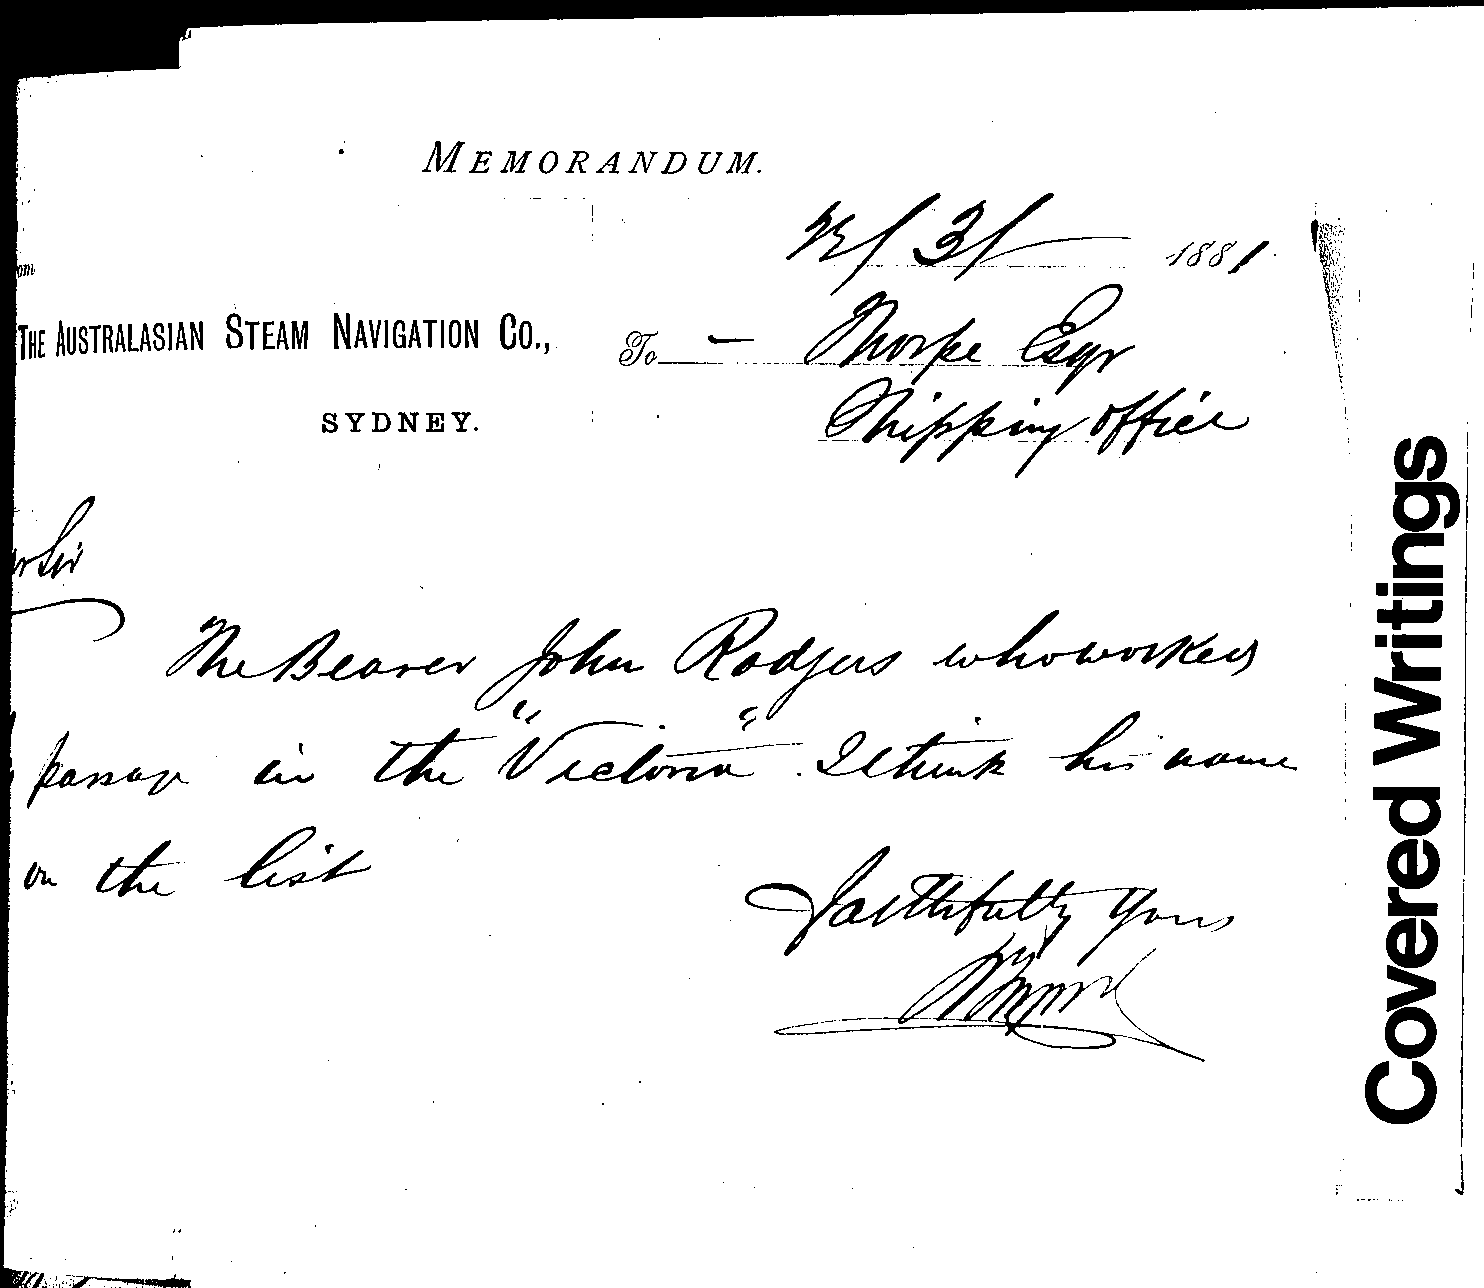 MEMORANDUM.
/3/ 1881
om
THE AUSTRALASIAN STEAM NAVIGATION CO.,
To — Thorpe Esqr
SYDNEY.
Shipping Office
r Sir
The Bearer John Rodgers who worked
passage in the "Victoria". I think his name
on the list
Faithfully Yours
Covered Writings